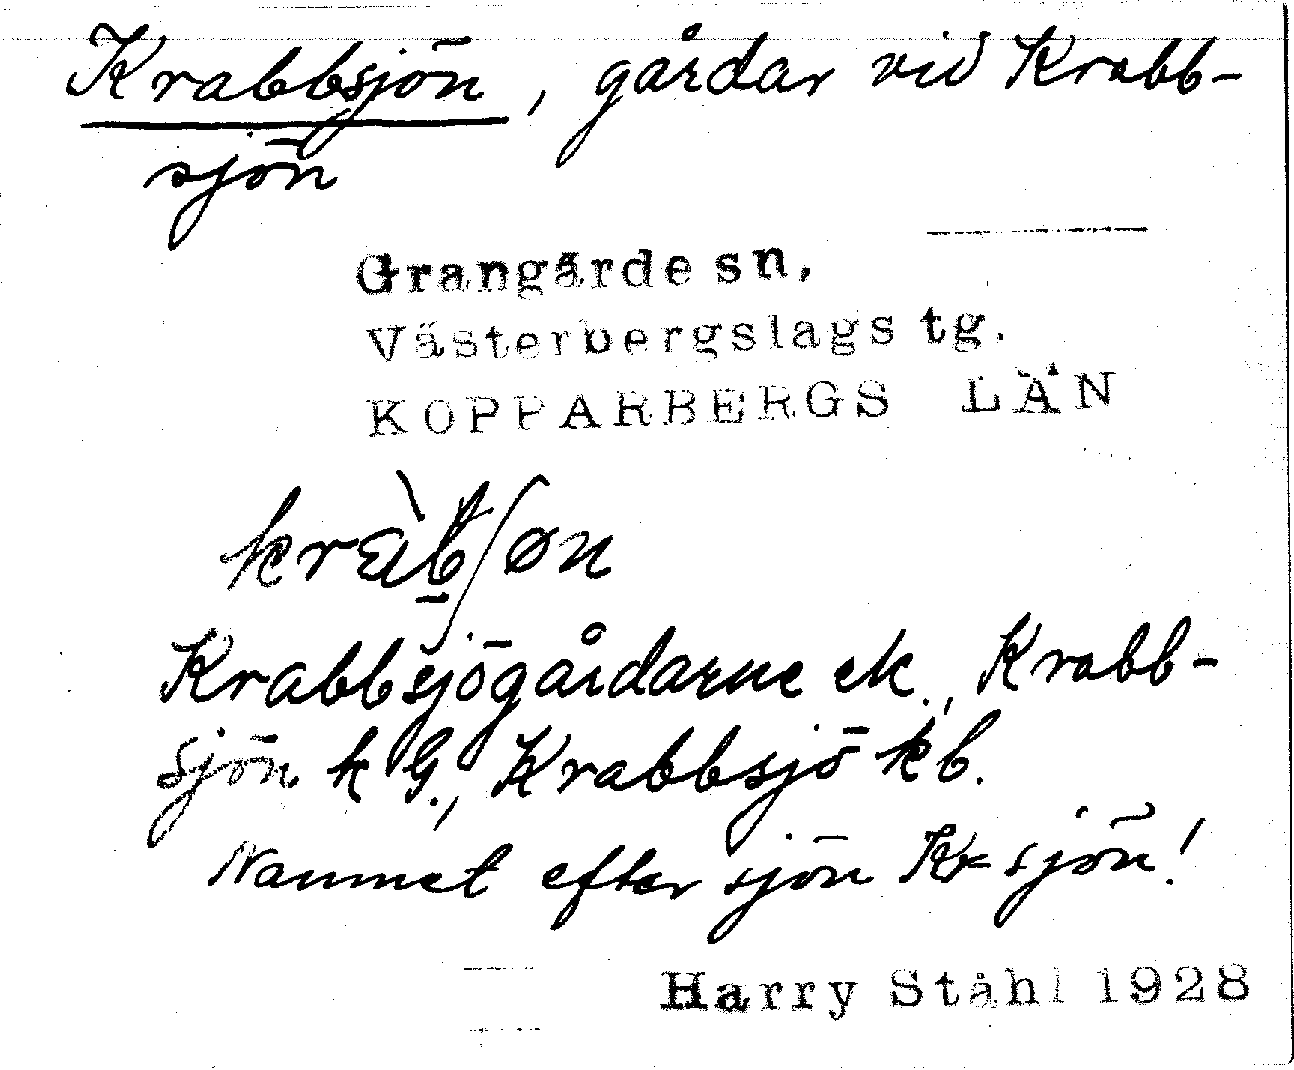 Krabbsjön, gårdar vid Krabb-
sjön
Grangärde sn,
Västerbergslags tg.
KOPPARBERGS LÄN
Krabbsjögårdarne ek., Krabb-
sjön k G., Krabbsjö kb.
Namnet efter sjön Kr-sjön!
Harry Ståhl 1928